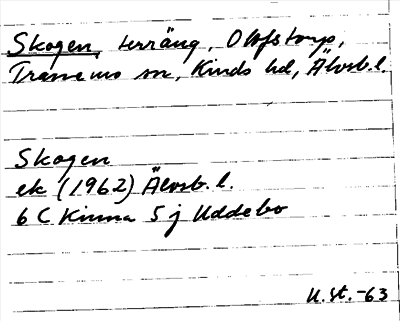 Skogen, terräng, Olofstorp,
Tranemo sn, Kinds hd, Älvsb.l.
Skogen
ek (1962) Älvsb.l.
6 C Kinna 5 j Uddebo
U.St.-63